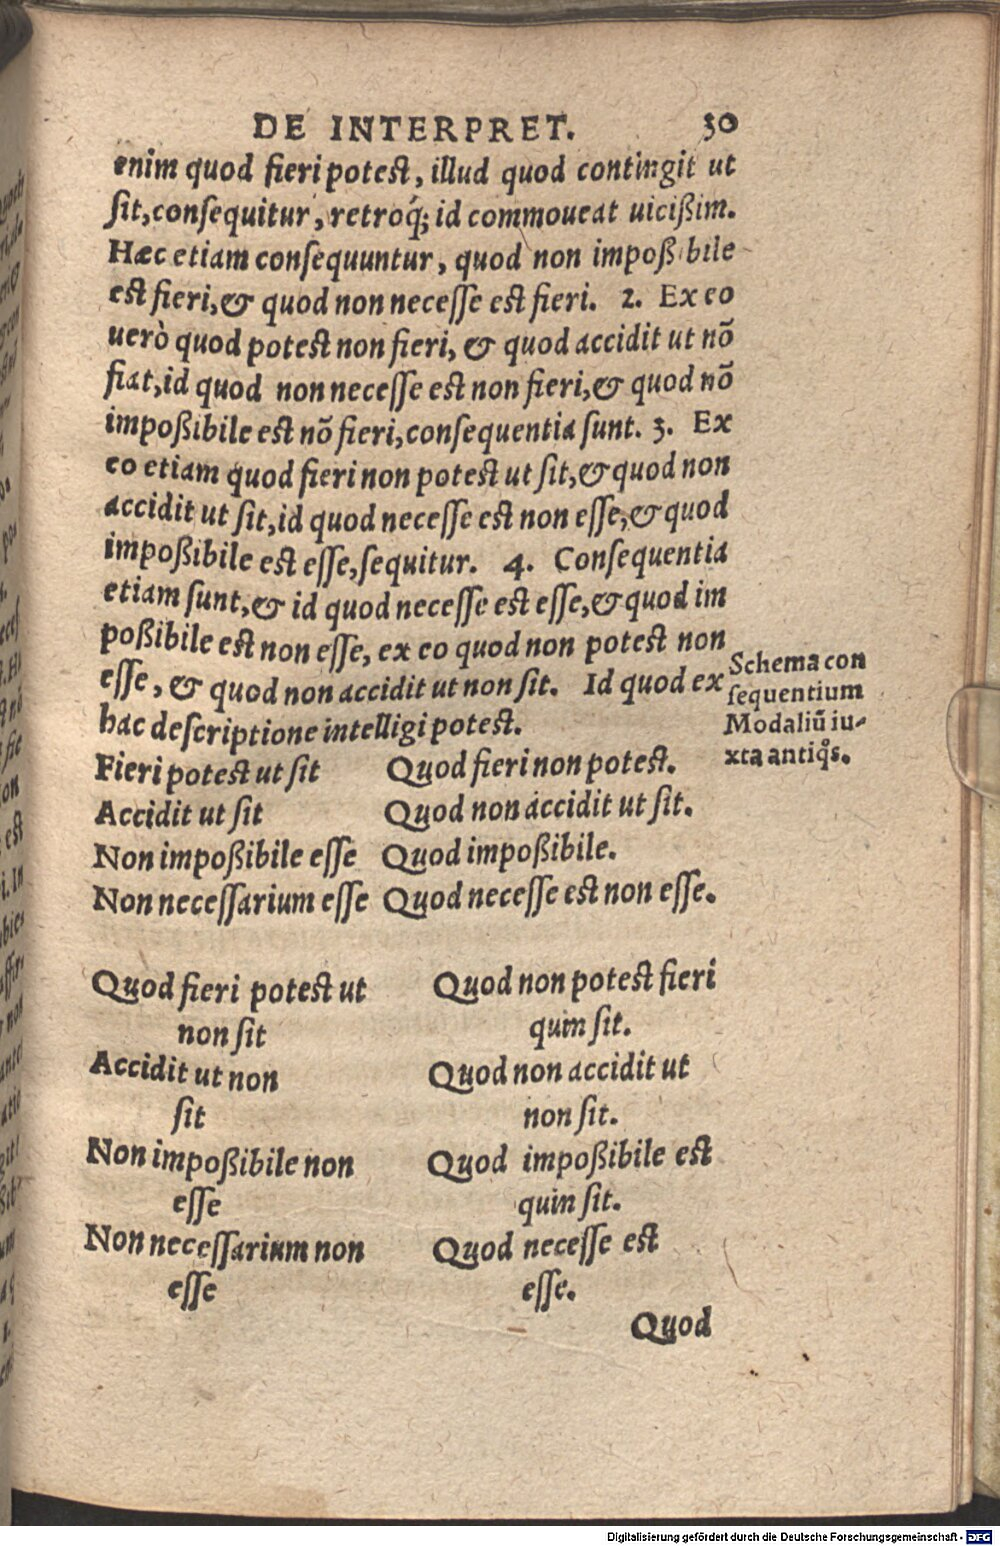 DE INTERPRET. 30
enim quod fieri potest, illud quod contingit ut
sit, consequitur, retroq́; id commoueat uicißim.
Hæc etiam consequuntur, quod non impoßibile
est fieri, & quod non necesse est fieri. 2. Ex eo
uerò quod potest non fieri, & quod accidit ut nõ
fiat, id quod non necesse est non fieri, & quod nõ
impoßibile est nõ fieri, consequentia sunt. 3. Ex
eo etiam quod fieri non potest ut sit, & quod non
accidit ut sit, id quod necesse est non esse, & quod
impoßibile est esse, sequitur. 4. Consequentia
etiam sunt, & id quod necesse est esse, & quod im
poßibile est non esse, ex eo quod non potest non
esse, & quod non accidit ut non sit. Id quod ex
hac descriptione intelligi potest.
Schema con
sequentium
Modaliũ iu-
xta antiq̃s.
Fieri potest ut sit Quod fieri non potest.
Accidit ut sit Quod non accidit ut sit.
Non impoßibile esse Quod impoßibile.
Non necessarium esse Quod necesse est non esse.
Quod fieri potest ut Quod non potest fieri
non sit quin sit.
Accidit ut non Quod non accidit ut
sit non sit.
Non impoßibile non Quod impoßibile est
esse quin sit.
Non necessarium non Quod necesse est
esse esse.
Quod
Digitalisierung gefördert durch die Deutsche Forschungsgemeinschaft - DFG